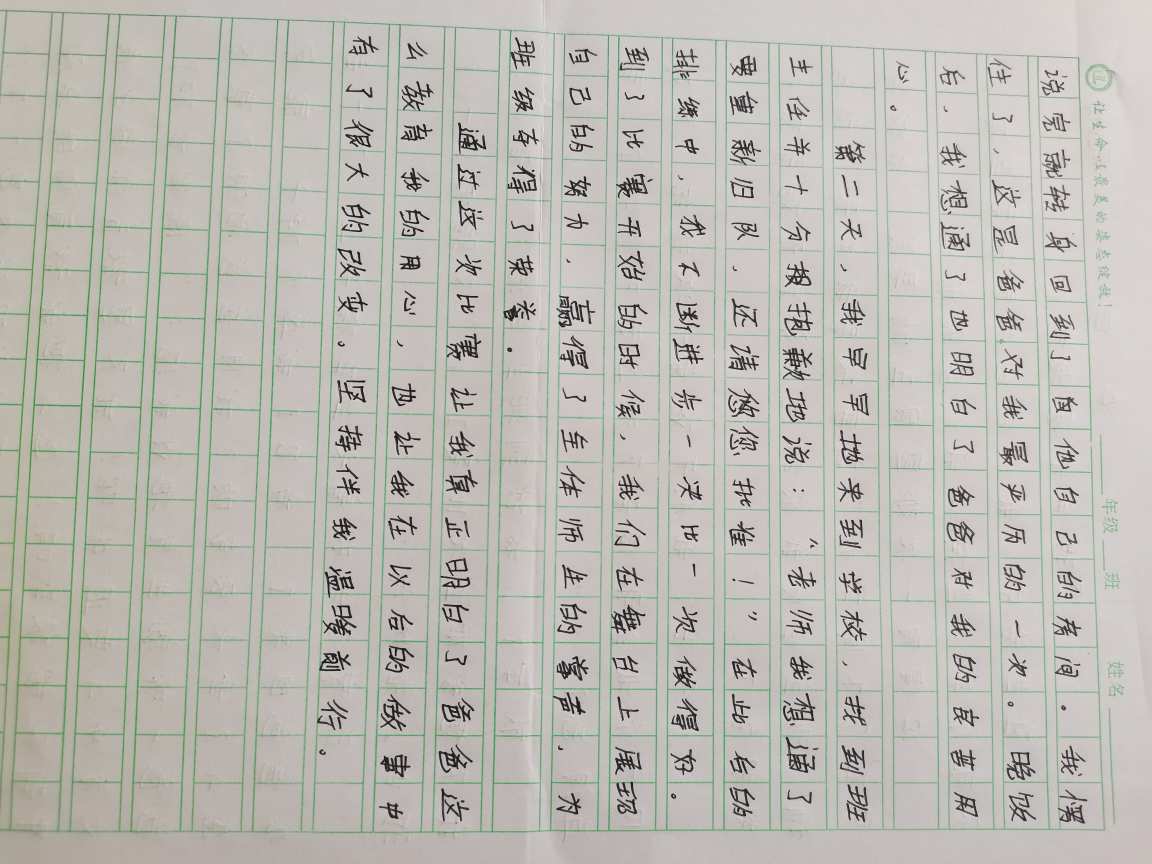 年级 班 姓名
说完就转身回到了自他自己的房间。我愣
住了，这是爸爸对我最严厉的一次。晚饭
后，我想通了也明白了爸爸对我的良苦用
心。
第二天，我早早地来到学校，找到班
主任并十分报抱歉地说：“老师我想通了
要重新归队，还请您您批准！”在此后的
排练中，我不断进步一次比一次做得好。
到了比赛开始的时候，我们在舞台上展现
自己的努力，赢得了全体师生的掌声，为
班级夺得了荣誉。
通过这次比赛让我真正明白了爸爸这
么教育我的用心，也让我在以后的做事中
有了很大的改变。坚持伴我温暖前行。